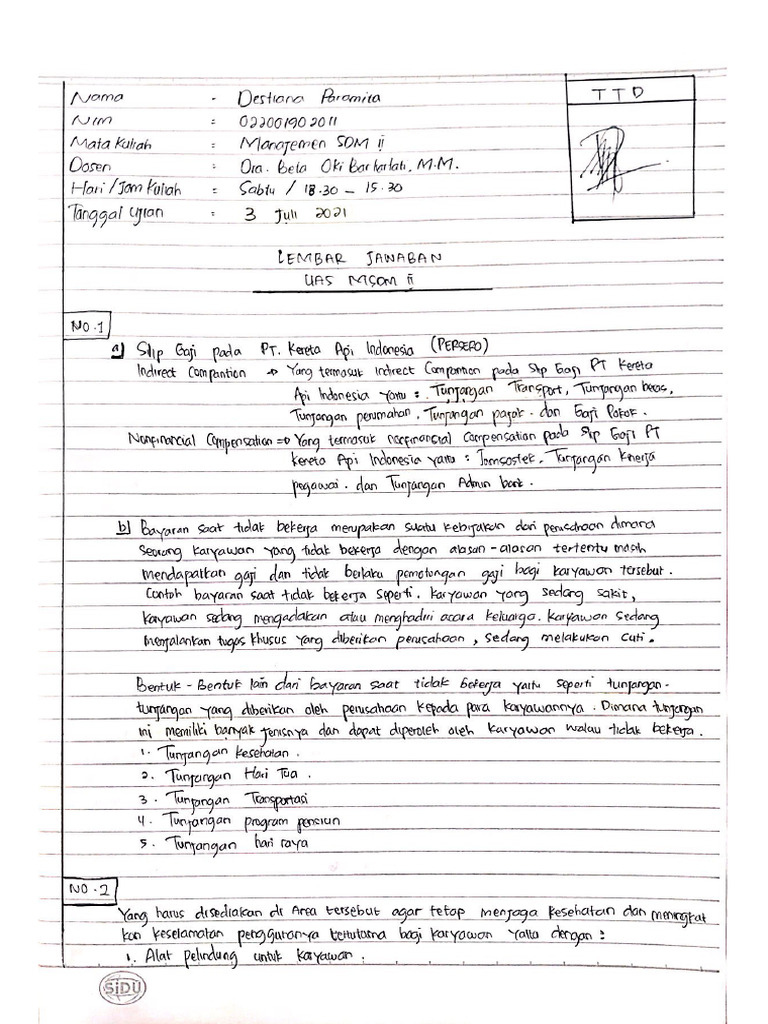 Nama - Destiana Paramita
TTD
Nim : 022001902011
Mata Kuliah : Manajemen SDM ii
Dosen : Dra. Beta Oki Bartartati, M.M.
Hari / Jam Kuliah = Sabtu / 13.30 - 15.30
Tanggal Ujian : 3 Juli 2021
LEMBAR JAWABAN
UAS MSDM ii
NO.1
a) Slip Gaji pada PT. Kereta Api Indonesia (PERSERO)
Indirect Compantion → Yang termasuk Indirect Compantion pada Slip Gaji PT Kereta
Api Indonesia yaitu : Tunjangan Transport, Tunjangan beras,
Tunjangan perumahan, Tunjangan pajak. dan Gaji Pokok.
Nonfinancial Compensation => Yang termasuk nonfinancial Compensation pada Slip Gaji PT
Kereta Api Indonesia yaitu : Jamsostek, Tunjangan Kinerja
pegawai. dan Tunjangan Admin bank.
b) Bayaran saat tidak bekerja merupakan suatu kebijakan dari perusahaan dimana
Seorang karyawan yang tidak bekerja dengan alasan-alasan tertentu masih
mendapatkan gaji dan tidak berlaku pemotongan gaji bagi karyawan tersebut.
Contoh bayaran saat tidak bekerja seperti. karyawan yang sedang sakit,
karyawan sedang mengadakan atau menghadiri acara keluarga. karyawan sedang
menjalankan tugas khusus yang diberikan perusahaan, sedang melakukan cuti.
Bentuk - Bentuk lain dari bayaran saat tidak bekerja yaitu seperti tunjangan-
tunjangan yang diberikan oleh perusahaan kepada para karyawannya. Dimana tunjangan
ini memiliki banyak jenisnya dan dapat diperoleh oleh karyawan walau tidak bekerja.
1. Tunjangan kesehatan.
2. Tunjangan Hari Tua.
3. Tunjangan Transportasi
4. Tunjangan program pensiun
5. Tunjangan hari raya
NO.2
Yang harus disediakan di Area tersebut agar tetap menjaga kesehatan dan meningkat
kan keselamatan penggunanya terutama bagi karyawan yaitu dengan :
1. Alat pelindung untuk karyawan.
SiDU